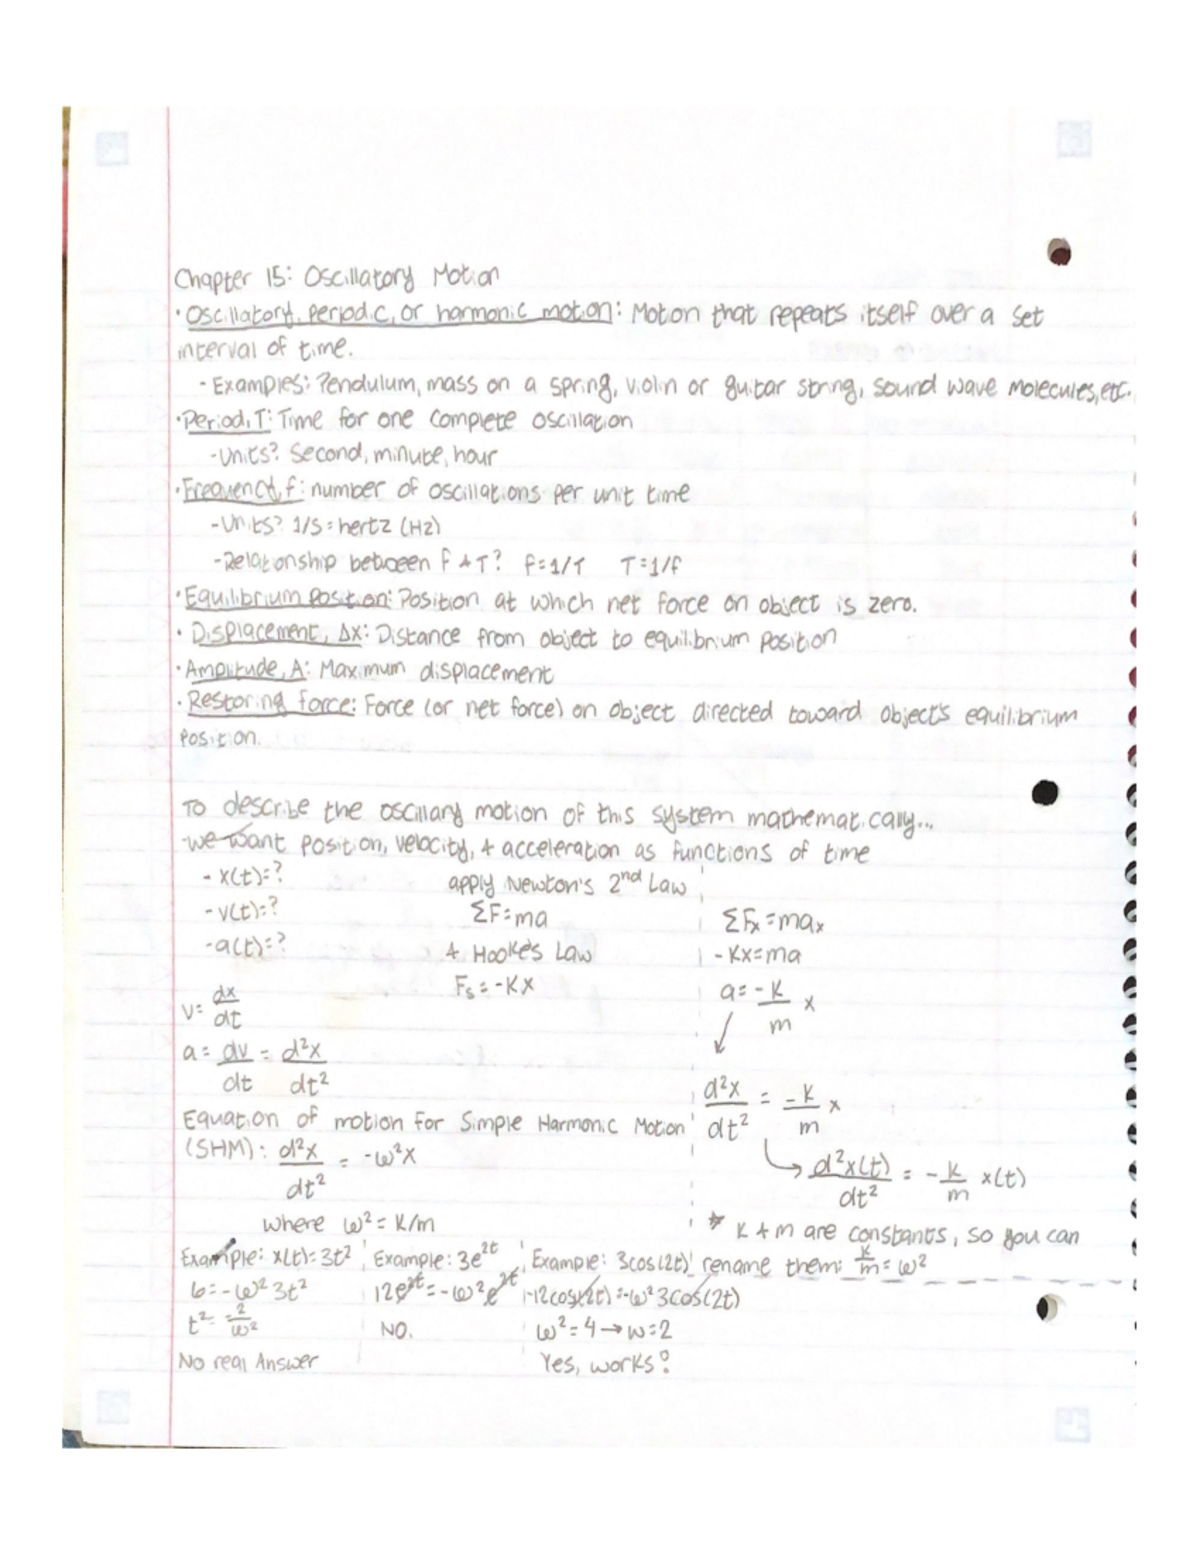 Chapter 15: Oscillatory Motion
· Oscillatory, periodic, or harmonic motion: Motion that repeats itself over a set
interval of time.
- Examples: Pendulum, mass on a spring, violin or guitar string, sound wave molecules, etc.
· Period, T: Time for one complete oscillation
- Units? Second, minute, hour
· Frequency, f: number of oscillations per unit time
- Units? 1/s = hertz (Hz)
- Relationship between f + T? f = 1/T T = 1/f
· Equilibrium Position: Position at which net force on object is zero.
· Displacement, Δx: Distance from object to equilibrium position
· Amplitude, A: Maximum displacement
· Restoring force: Force (or net force) on object directed toward object's equilibrium
Position.
To describe the oscillary motion of this system mathematically...
- we want position, velocity, + acceleration as functions of time
- x(t) = ?
- v(t) = ?
- a(t) = ?
v = dx/dt
a = dv/dt = d²x/dt²
apply Newton's 2nd Law
ΣF = ma
+ Hooke's Law
Fs = -Kx
ΣFx = max
- Kx = ma
a = -k/m x
d²x/dt² = -k/m x
d²x(t)/dt² = -k/m x(t)
* K + m are constants, so you can
rename them: k/m = ω²
Equation of motion for Simple Harmonic Motion
(SHM): d²x/dt² = -ω²x
where ω² = K/m
Example: x(t) = 3t²
6 = -ω² 3t²
t² = -2/ω²
No real Answer
Example: 3e^2t
12e^2t = -ω²e^2t
NO.
Example: 3cos(2t)
-12cos(2t) = -ω² 3cos(2t)
ω² = 4 → w = 2
Yes, works!